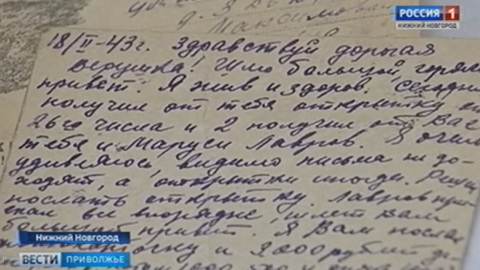 РОССИЯ 1
НИЖНИЙ НОВГОРОД
18/II-43г. Здравствуй дорогая
Верушка! Шлю большой, горячий
привет. Я жив и здоров. Сегодня
получил от тебя открытку от
26го числа и 2 получил от Вас
тебя и Маруси Лавров. Я очень
удивляюсь, видимо письма не до-
ходят, а открытки иногда. Решил
послать открытку. Лавров
все впорядке, шлет Вам
привет. Я Вам послал
и 2000 рубл
Нижний Новгород
ВЕСТИ ПРИВОЛЖЬЕ